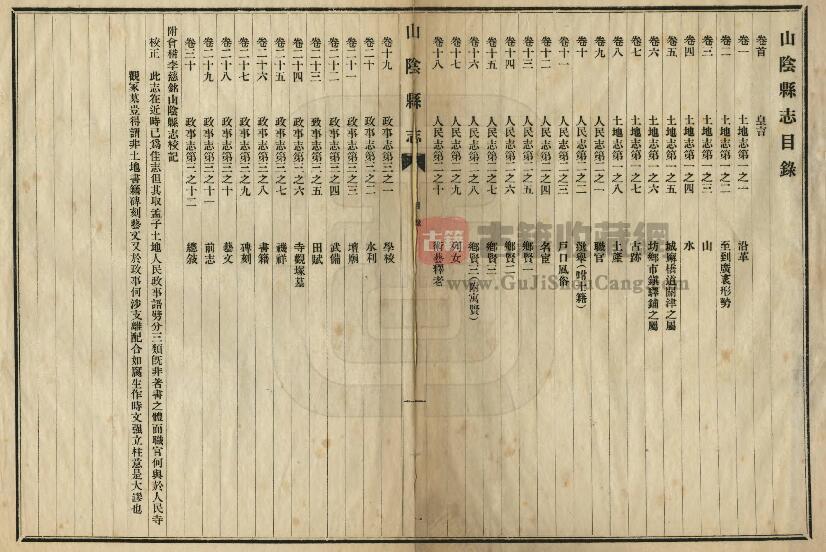 山陰縣志目錄
卷首 皇言
卷一 土地志第一之一 沿革
卷二 土地志第一之二 至到廣袤形勢
卷三 土地志第一之三 山
卷四 土地志第一之四 水
卷五 土地志第一之五 城廨橋道關津之屬
卷六 土地志第一之六 坊鄉市鎮驛鋪之屬
卷七 土地志第一之七 古跡
卷八 土地志第一之八 土產
卷九 人民志第二之一 職官
卷十 人民志第二之二 選舉(附土籍)
卷十一 人民志第二之三 戶口風俗
卷十二 人民志第二之四 名宦
卷十三 人民志第二之五 鄉賢一
卷十四 人民志第二之六 鄉賢二
卷十五 人民志第二之七 鄉賢三
卷十六 人民志第二之八 鄉賢三(附寓賢)
卷十七 人民志第二之九 列女
卷十八 人民志第二之十 術藝釋老
山陰縣志 目錄 一
卷十九 政事志第三之一 學校
卷二十 政事志第三之二 水利
卷二十一 政事志第三之三 壇廟
卷二十二 政事志第三之四 武備
卷二十三 政事志第三之五 田賦
卷二十四 政事志第三之六 寺觀塚墓
卷二十五 政事志第三之七 禨祥
卷二十六 政事志第三之八 書籍
卷二十七 政事志第三之九 碑刻
卷二十八 政事志第三之十 藝文
卷二十九 政事志第三之十一 前志
卷三十 政事志第三之十二 總敍
附會稽李慈銘山陰縣志校記
校正 此志在近時已爲佳志但其取孟子土地人民政事語劈分三類旣非著書之體而職官何與於人民寺
觀冢墓豈得謂非土地書籍碑刻藝文又於政事何涉支離配合如腐生作時文强立柱意是大謬也
古籍 古籍收藏網
www.GuJiShouCang.com